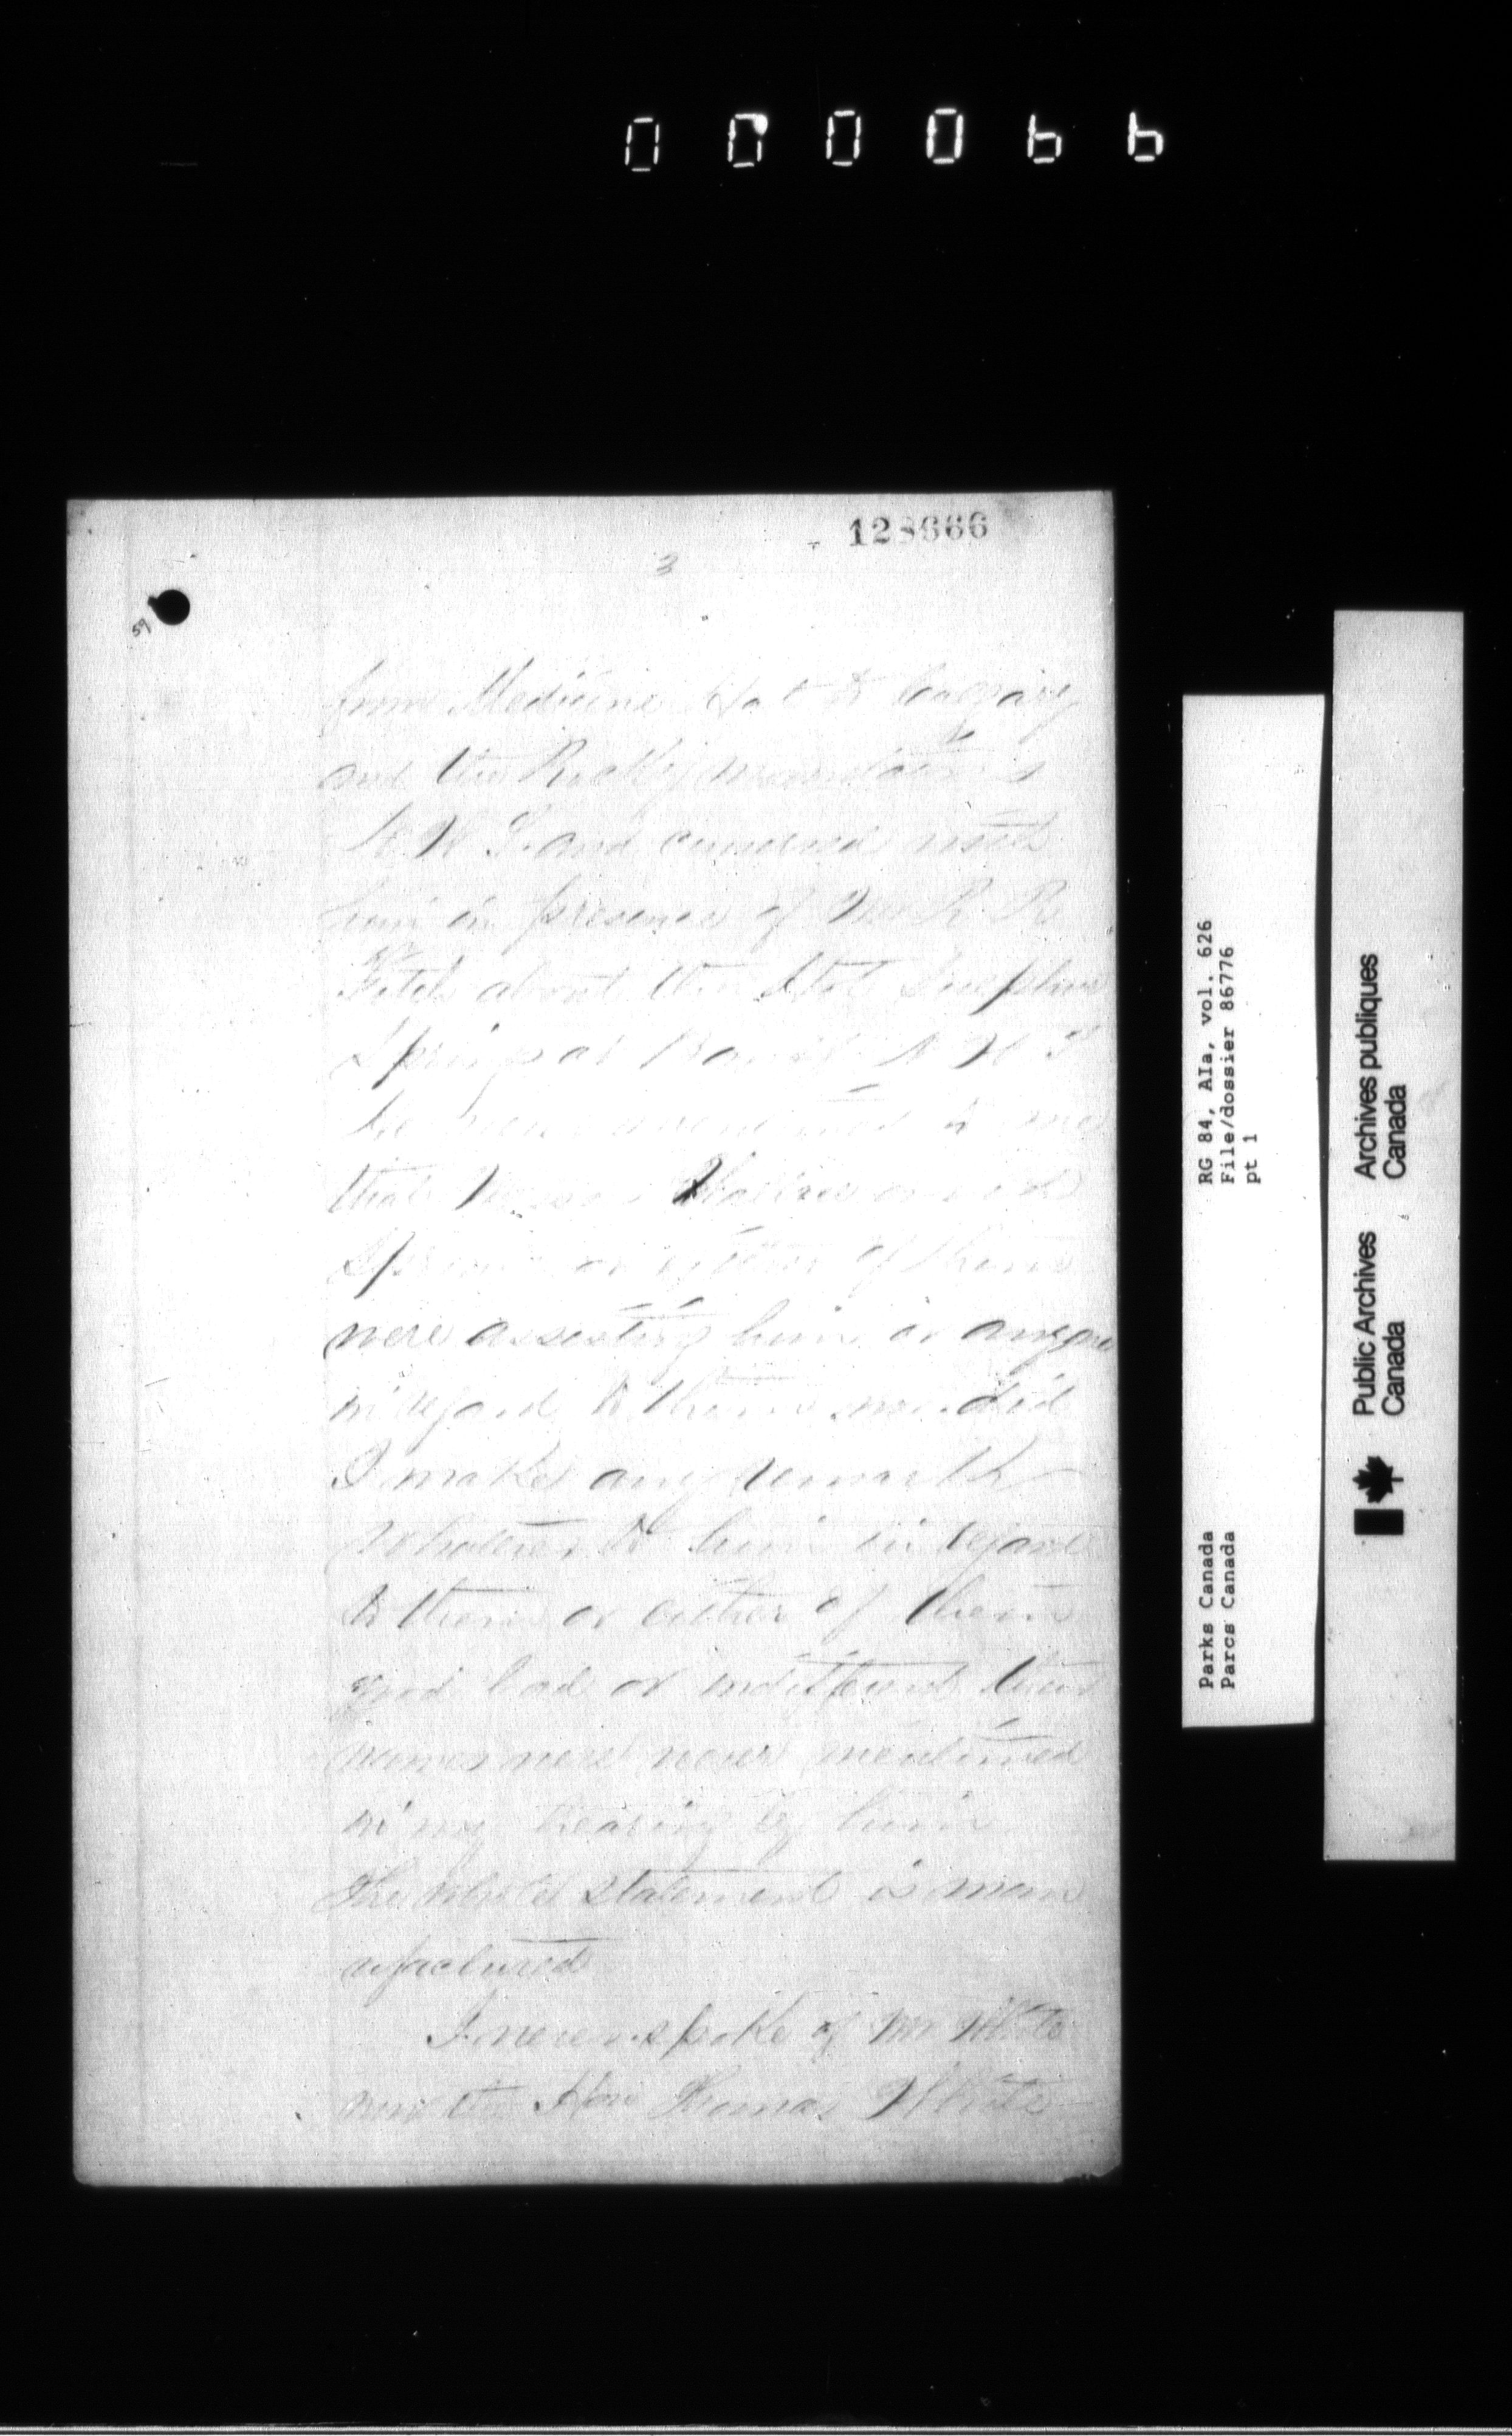 000066
128666
3
59
from Medicine Hat to Calgary
and the Rocky mountains
N W T and conversed with
him in presence of Mr R. R.
about the Hot Sulphur
Springs at Banff N W T
he never to me
that
or either of them
were assisting him or anyone
in regard to them nor did
I make any remark
whatever to him in regard
to them or either of them
good bad or indifferent their
names were never mentioned
in my hearing by him
The whole statement is man
ufactured
I never spoke of Mr White
now the Hon Thomas White
RG 84, AIa, vol. 626
File/dossier 86776
pt 1
Parks Canada
Parcs Canada
Public Archives
Canada
Archives publiques
Canada